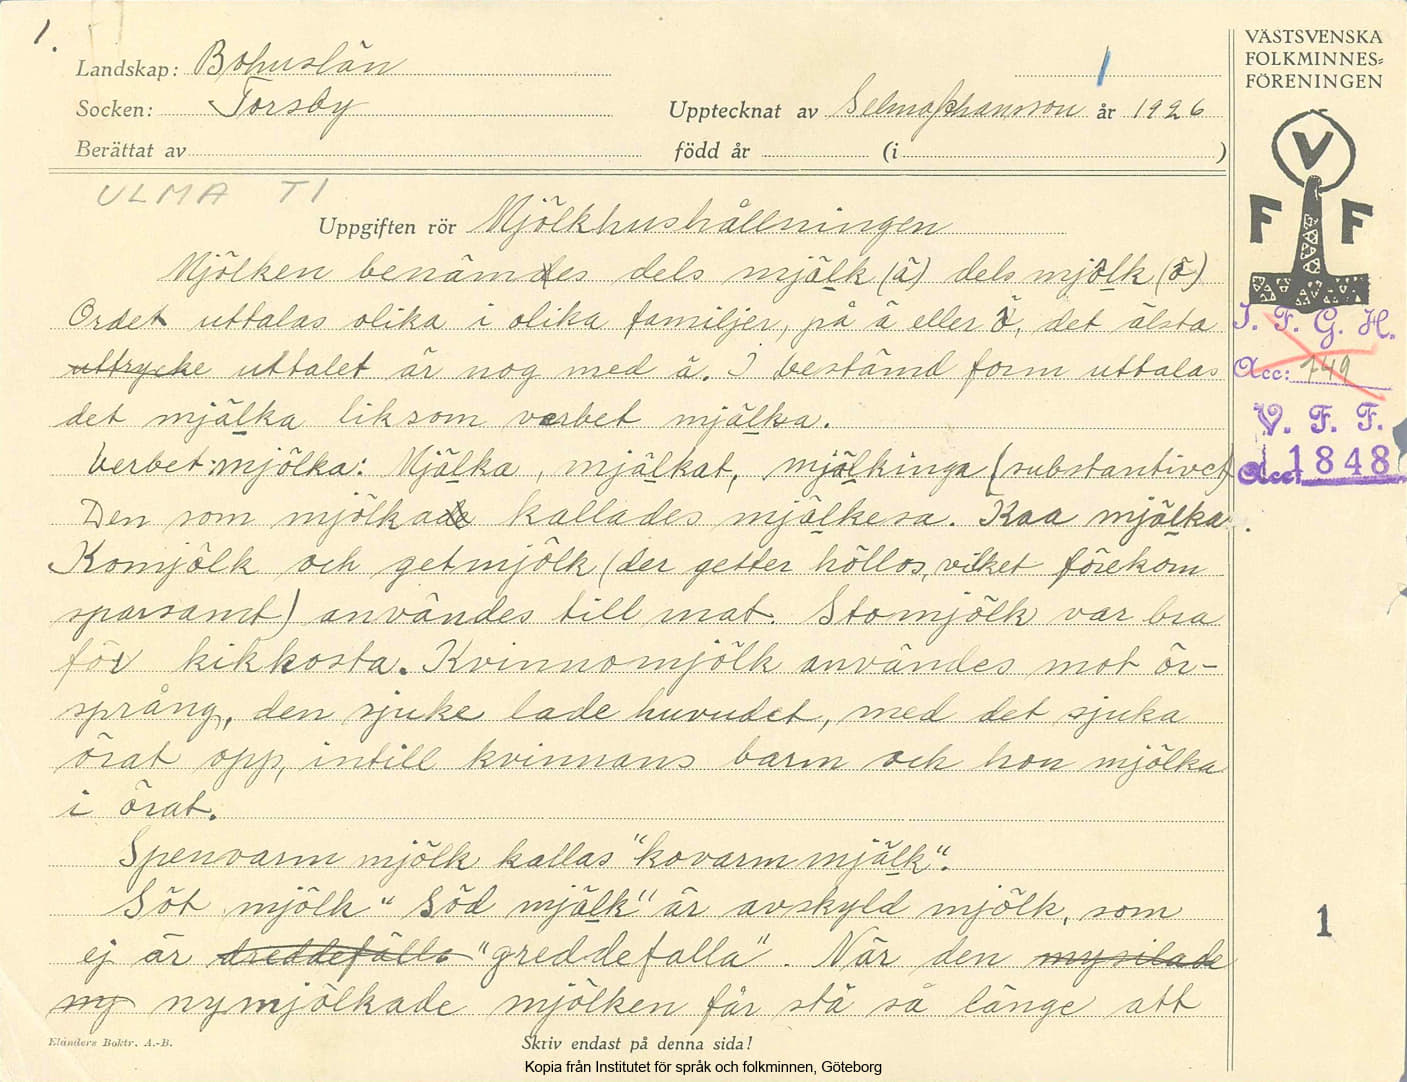 1.
Landskap: Bohuslän
1
Socken: Torsby
Upptecknat av Selma Johansson år 1926
Berättat av född år (i )
VÄSTSVENSKA
FOLKMINNES=
FÖRENINGEN
V
F F
ULMA T1
Uppgiften rör Mjölkhushållningen
Mjölken benämdes dels mjälk (ä) dels mjölk (ö)
Ordet uttalas olika i olika familjer, på ä eller ö, det älsta
uttrycke uttalet är nog med ä. I bestämd form uttalas
det mjälka liksom verbet mjälka.
Verbet: mjölka: Mjälka, mjälkat, mjälkinga (substantivet)
Den som mjölkade kallades mjälkesa. Kaa mjälka.
Komjölk och getmjölk (der getter höllos, vilket förekom
sparsamt) användes till mat. Stomjölk var bra
för kikkosta. Kvinnomjölk användes mot ör-
språng, den sjuke lade huvudet, med det sjuka
örat opp, intill kvinnans barm och hon mjölka
i örat.
Spenvarm mjölk kallas "kovarm mjälk".
Söt mjölk "Söd mjälk" är avskyld mjölk, som
ej är dreddefälla "greddefalla". När den nysilade
ny nymjölkade mjölken får stå så länge att
I. F. G. H.
Acc: 749
V. F. F.
Acc: 1848
1
Elanders Boktr. A.-B.
Skriv endast på denna sida!
Kopia från Institutet för språk och folkminnen, Göteborg